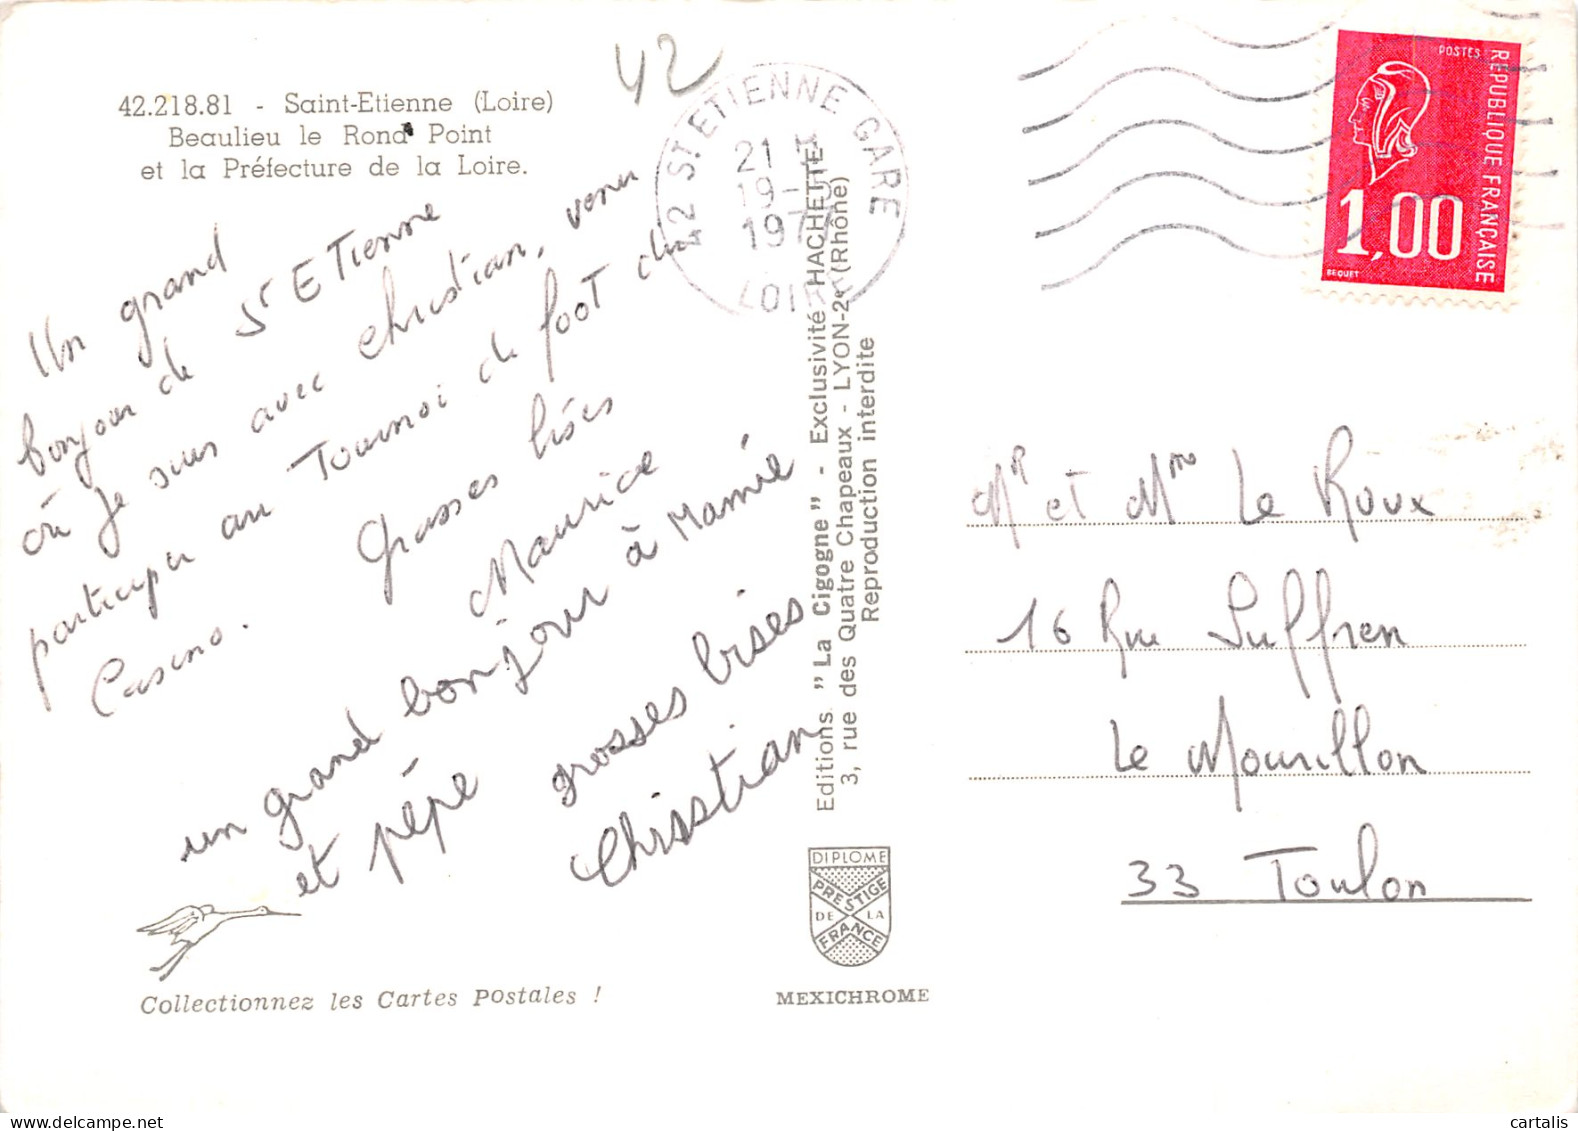 42.218.81 - Saint-Etienne (Loire)
Beaulieu le Rond Point
et la Préfecture de la Loire.
42
42 ST ETIENNE GARE
21 H
19-
197
LOIRE
POSTES
REPUBLIQUE FRANÇAISE
1,00
BEQUET
Un grand
bonjour de St Etienne
où je suis avec Christian, venu
participer au Tournoi de foot du
Casino. Grosses bises
Maurice
un grand bonjour à Mamie
et pépé grosses bises
Chrisstian
Editions "La Cigogne" - Exclusivité HACHETTE
3, rue des Quatre Chapeaux - LYON-2e (Rhône)
Reproduction interdite
Mr et Mme Le Roux
16 Rue Suffren
Le Mourillon
33 Toulon
DIPLOME
PRESTIGE
DE LA
FRANCE
Collectionnez les Cartes Postales !
MEXICHROME
cartalis